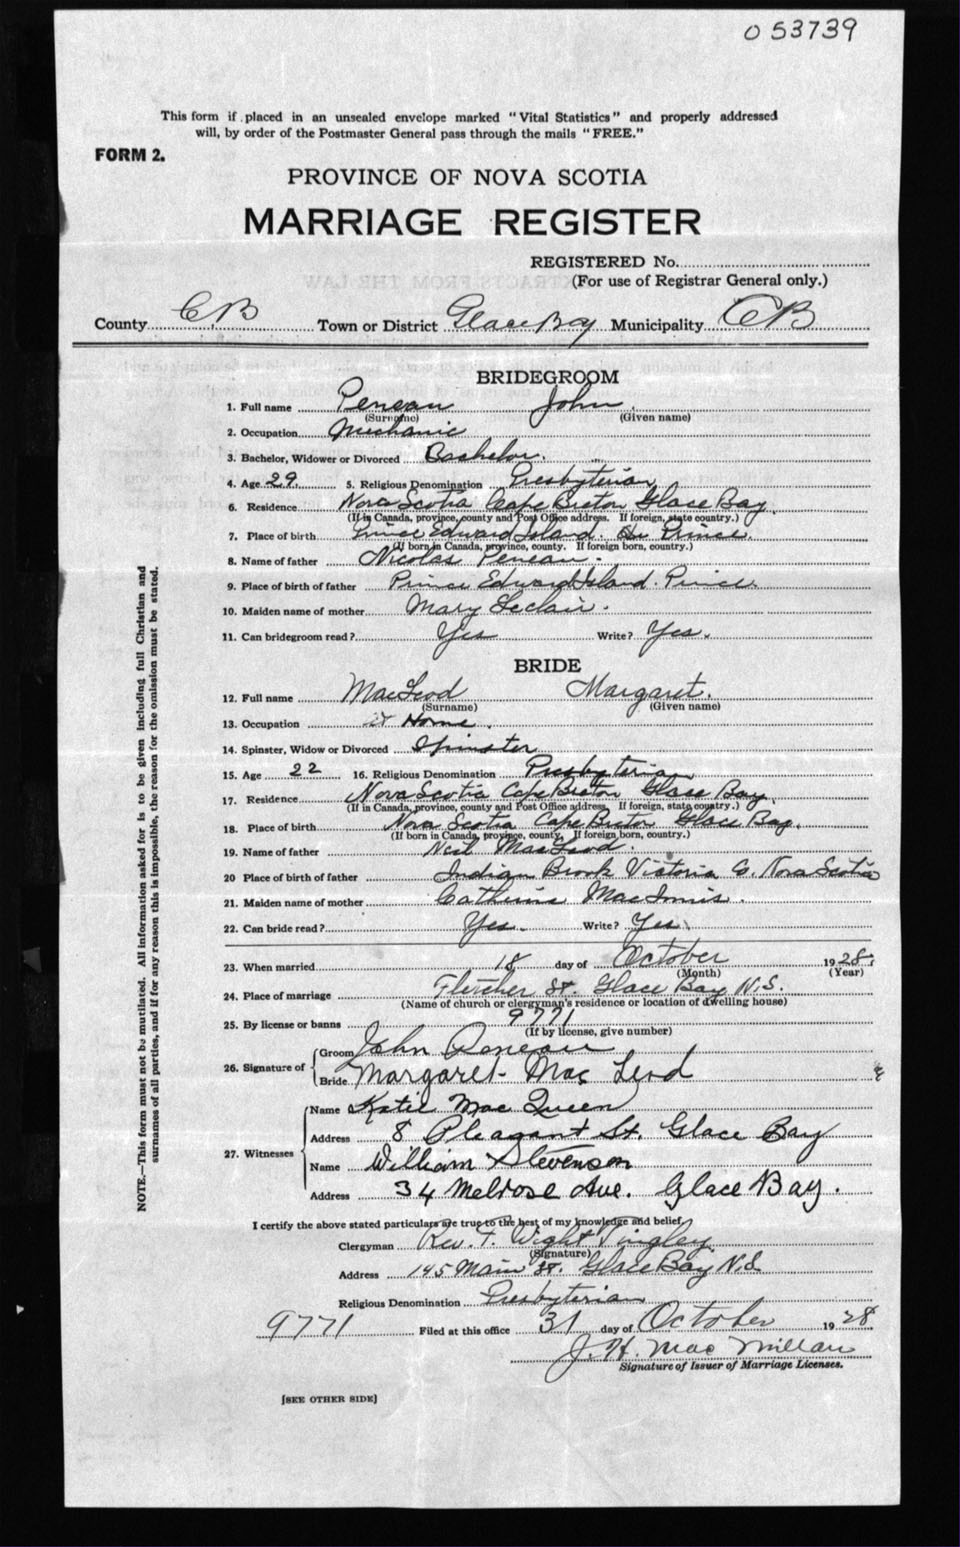 053739
This form if placed in an unsealed envelope marked "Vital Statistics" and properly addressed
will, by order of the Postmaster General pass through the mails "FREE."
FORM 2.
PROVINCE OF NOVA SCOTIA
MARRIAGE REGISTER
REGISTERED No.
(For use of Registrar General only.)
County C B Town or District Glace Bay Municipality C B
BRIDEGROOM
1. Full name Peneau John
(Surname) (Given name)
2. Occupation Mechanic
3. Bachelor, Widower or Divorced Bachelor.
4. Age 29. 5. Religious Denomination Presbyterian
6. Residence Nova Scotia Cape Breton Glace Bay.
(If in Canada, province, county and Post Office address. If foreign, state country.)
7. Place of birth Prince Edward Island. Prince
(If born in Canada, province, county. If foreign born, country.)
8. Name of father Nicolas Peneau.
9. Place of birth of father Prince Edward Island. Prince.
10. Maiden name of mother Mary Leclair.
11. Can bridegroom read? Yes Write? Yes.
BRIDE
12. Full name MacLeod Margaret.
(Surname) (Given name)
13. Occupation at Home.
14. Spinster, Widow or Divorced Spinster
15. Age 22 16. Religious Denomination Presbyterian
17. Residence Nova Scotia Cape Breton Glace Bay.
(If in Canada, province, county and Post Office address. If foreign, state country.)
18. Place of birth Nova Scotia Cape Breton Glace Bay.
(If born in Canada, province, county. If foreign born, country.)
19. Name of father Neil MacLeod.
20 Place of birth of father Indian Brook Victoria Co. Nova Scotia
21. Maiden name of mother Catherine MacInnis.
22. Can bride read? Yes. Write? Yes
23. When married 18 day of October 1928.
(Month) (Year)
24. Place of marriage Fletcher St. Glace Bay N.S.
(Name of church or clergyman's residence or location of dwelling house)
25. By license or banns 9771
(If by license, give number)
26. Signature of Groom John Peneau
Bride Margaret Mac Leod
27. Witnesses Name Katie MacQueen
Address 8 Pleasant St. Glace Bay
Name William Stevenson
Address 34 Melrose Ave. Glace Bay.
I certify the above stated particulars are true to the best of my knowledge and belief,
Clergyman Rev. T. Wight Pingley.
(Signature)
Address 145 Main St. Glace Bay N.S.
Religious Denomination Presbyterian
9771 Filed at this office 31 day of October 1928
J. H. MacMillan
Signature of Issuer of Marriage Licenses.
[SEE OTHER SIDE]
NOTE.—This form must not be mutilated. All information asked for is to be given including full Christian and
surnames of all parties, and if for any reason this is impossible, the reason for the omission must be stated.